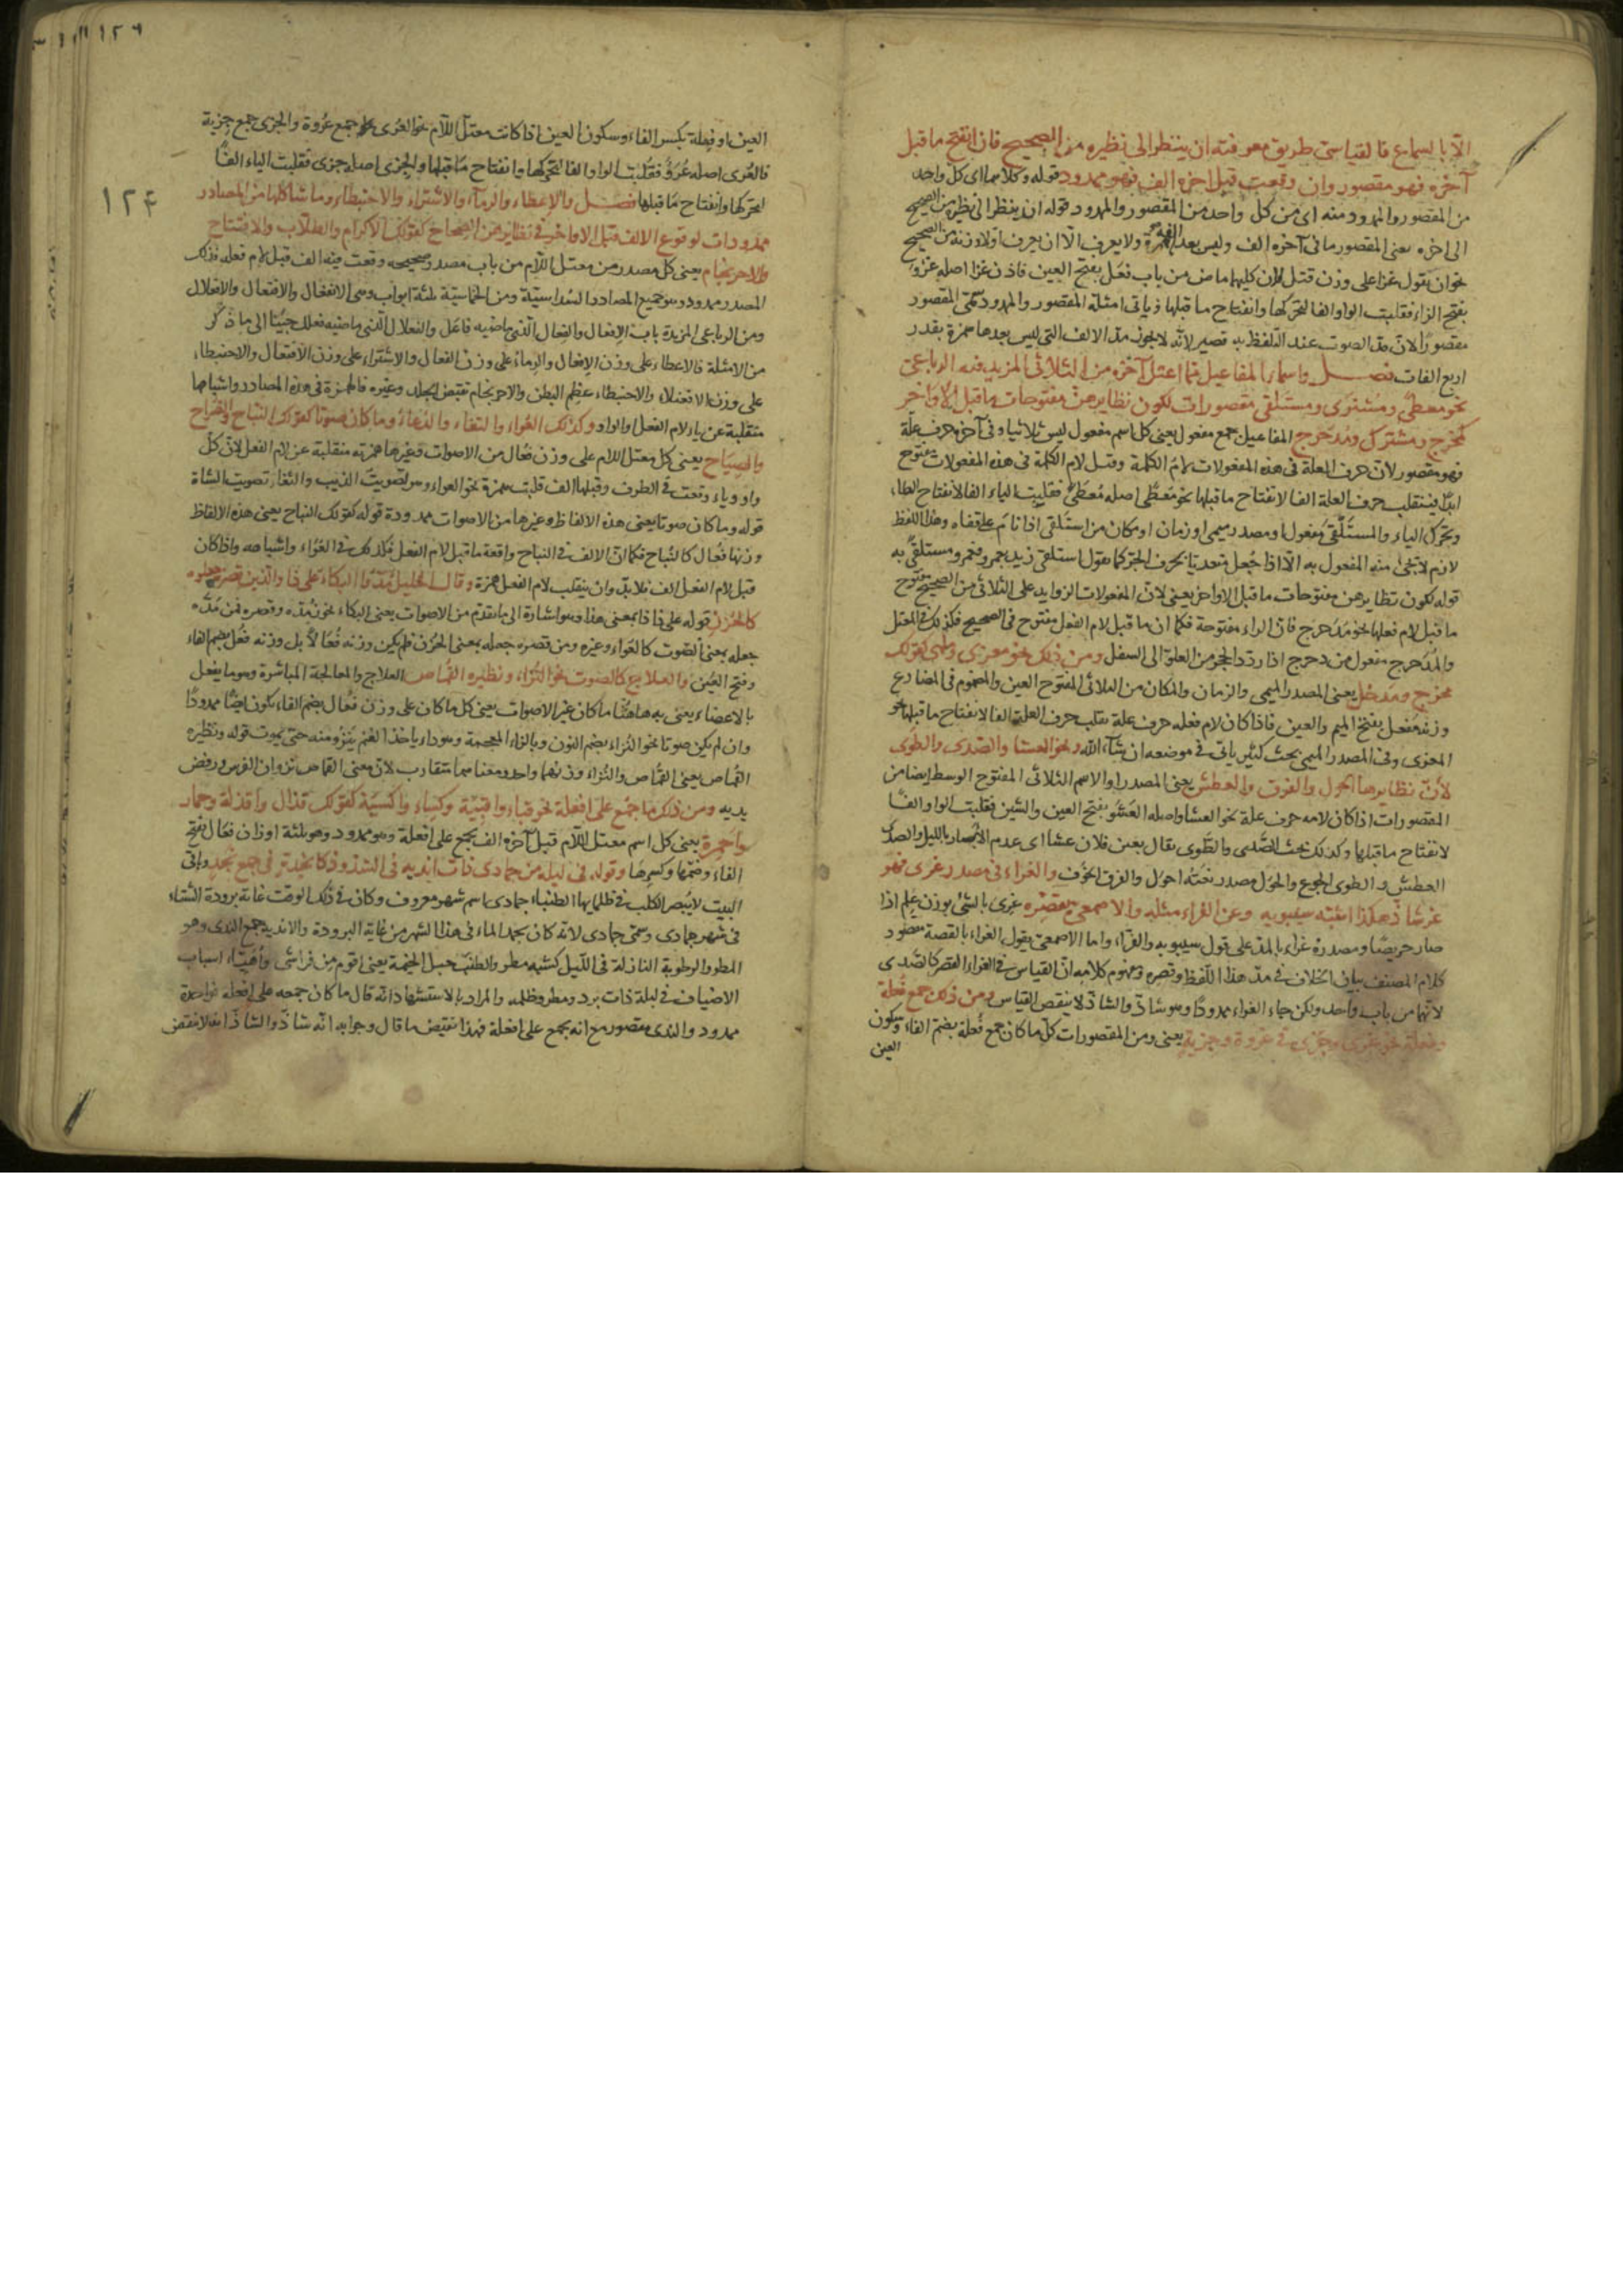 الّا بالسماع فالقياسىّ طريق معرفته ان ينظر الى نظيره من الصحيح فان انفتح ما قبل
آخره فهو مقصور وان وقعت قبل اخره الف فهو ممدود قوله وكلاهما اى كل واحد
من المقصور والممدود منه اى من كل واحد من المقصور والممدود قوله ان ينظر الى نظيره من الصحيح
الى اخره يعنى المقصور ما فى آخره الف وليس بعد الفه همزة ولا يعرف الّا ان يعرف اولا وزنه من الصحيح
نحو ان تقول غزا على وزن قتل لان كليهما ماض من باب فعَل بفتح العين فاذن غزا اصله غزوَ
بفتح الزاء فقلبت الواو الفا لتحركها وانفتاح ما قبلها وياتى امثلة المقصور والممدود سمّى المقصور
مقصورًا لانّ مدّ الصوت عند التلفظ به قصير لانّه لا يجوز مدّ الالف التى ليس بعدها همزة بقدر
اربع الفات فصل واسماء المفاعيل مما اعتل آخره من الثلاثى المزيد فيه والرباعىّ
نحو معطًى ومشترى ومستلقى مقصورات لكون نظايرهنّ مفتوحات ما قبل الاواخر
كمخرج ومشترك ومدحرج المفاعيل جمع مفعول يعنى كل اسم مفعول ليس ثلاثيا وفى آخره حرف علّة
فهو مقصور لانّ حرف العلة فى هذه المفعولات لامُ الكلمة وقبل لام الكلمة فى هذه المفعولات مفتوح
ابدًا فينقلب حرف العلة الفا لانفتاح ما قبلها نحو مُعطًى اصله مُعطَىٌ فقلبت الياء الفا لانفتاح الطاء
وتحرك الياء والمستَلقى مفعول او مصدر ميمى او زمان او مكان من استلقى اذا نام على قفاه وهذا اللفظ
لازم لا يجئ منه المفعول به الّا اذا جُعل متعديا بحرف الجرّ كما تقول استلقى زيد بعمرو فعمرو مستلقًى به
قوله لكون نظايرهن مفتوحات ما قبل الاواخر يعنى لانّ المفعولات الزوايد على الثلاثى من الصحيح مفتوح
ما قبل لام فعلها نحو مُدَحرج فانّ الراء مفتوحة فكما ان ما قبل لام الفعل مفتوح فى الصحيح فكذلك فى المعتل
والمُدَحرج مفعول من دحرج اذا ردّد الحجر من العلوّ الى السفل ومن ذلك نحو معزى وملهى كقولك
مخرج ومدخل يعنى المصدر الميمى والزمان والمكان من الثلاثى المفتوح العين والمضموم فى المضارع
وزنه مَفعل بفتح الميم والعين فاذا كان لام فعله حرف علة تقلب حرف العلة الفا لانفتاح ما قبلها نحو
المغزى وفى المصدر الميمى بحث كثير ياتى فى موضعه ان شاء الله ونحو العشا والصّدى والطوى
لانّ نظايرها الحول والفرق والعطش يعنى المصدر او الاسم الثلاثى المفتوح الوسط ايضا من
المقصورات اذا كان لامه حرف علة نحو العشا واصله العَشَو بفتح العين والشين فقلبت الواو الفًا
لانفتاح ما قبلها وكذلك بحث الصّدى والطَّوى يقال بعين فلان عشا اى عدم الابصار بالليل والصدى
العطش والطوى الجوع والحوَل مصدر نعته احول والفرق الخوف والغراء فى مصدر غرى فهو
غرٍ شاذّ هكذا اثبته سيبويه وعن الفراء مثله والاصمعى يقصره غرى بالشئ بوزن علِم اذا
صار حريصًا ومصدره غراء بالمدّ على قول سيبويه والفرّاء واما الاصمعى يقول الغراء بالقصر مقصود
كلام المصنف بيان الخلاف فى مدّ هذا اللفظ وقصره ومفهوم كلامه انّ القياس فى الغراء القصر كالصّدى
لانهما من باب واحد ولكن جاء الغراء ممدودًا وهو شاذّ والشاذّ لا ينقض القياس ومن ذلك جمع فُعلة
وفِعلة نحو عُرى وجزى فى عروة وجزية يعنى ومن المقصورات كلّ ما كان جمع فُعلة بضم الفاء وسكون
العين
١٢٦
١٢۴
العين او فِعلة بكسر الفاء وسكون العين اذا كانت معتلّ اللّام نحو العُرى جمع عُروة والجزى جمع جِزية
فالعُرى اصله عُرَوٌ فقُلبت الواو الفا لتحركها وانفتاح ما قبلها والجزى اصله جزى فقلبت الياء الفًا
لتحركها وانفتاح ما قبلها فصل والاعطاء والرماء والاشتراء والاحبنطاء وما شاكلها من المصادر
ممدودات لوقوع الالف قبل الاواخر فى نظايرهن الصحاح كقولك الاكرام والطلاب والافتتاح
والاحرنجام يعنى كل مصدر من معتل اللّام من باب مصدر صحيحه وقعت فيه الف قبل لام فعله فذلك
المصدر ممدود وهو جميع المصادر السداسيّة ومن الخماسيّة ثلثة ابواب وهى الانفعال والافتعال والافعلال
ومن الرباعى المزيدة باب الافعال والفِعال الّذى ماضيه فاعَل والفعلال الّذى ماضيه فعلل جئنا الى ما ذكر
من الامثلة فالاعطاء على وزن الافعال والرماءُ على وزن الفعال والاشتراء على وزن الافتعال والاحبنطاء
على وزن الافعنلاء والاحبنطاء عظم البطن والاحرنجام نقيض وغيره فالهمزة فى هذه المصادر واشباهها
منقلبة عن ياء لام الفعل والواو وكذلك العُواء والثغاء والدُّعاء وما كان صوتا كقولك النباح والصُراخ
والصيَاح يعنى كل معتل اللام على وزن فُعال من الاصوات وغيرها همزته منقلبة عن لام الفعل لانّ كلّ
واو وياء وقعت فى الطرف وقبلها الف قلبت همزة نحو العواء وهو تصويت الذيب والثغاء تصويت الشاة
قوله وما كان صوتا يعنى هذه الالفاظ وغيرها من الاصوات ممدودة قوله كقولك النباح يعنى هذه الالفاظ
وزنها فُعال كالنُّباح فكما انّ الالف فى النباح واقعة ما قبل لام الفعل فكذلك فى العُوَاء واشباهه واذا كان
قبل لام الفعل الف فلا بدّ وان ينقلب لام الفعل همزة وقال الخليل مدّوا البكاء على ذا والذين قصروه جعلوه
كالحُزْن قوله على ذا ذا بمعنى هذا وهو اشارة الى ما تقدم من الاصوات يعنى البكاء يجوز مدّه وقصره فمن مَدّه
جعله بمعنى الصوت كالعواء وغيره ومن قصره جعله بمعنى الحزن فلم يكن وزنه فُعَالاً بل وزنه فعَل بضم الفاء
وفتح العين والعلاج كالصوت نحو النُّزاء ونظيره القُماص العلاج والمعالجة المباشرة وهو ما يفعل
بالاعضاء يعنى به هاهنا ما كان غير الاصوات يعنى كل ما كان على وزن فُعال بضم الفاء يكون ايضًا ممدودًا
وان لم يكن صوتا نحو النُزاء بضم النون وبالزاء المعجمة وهو داء ياخذ الغنم فتنزو منه حتى يموت قوله ونظيره
القُماص يعنى القُماص والنُّزاء وزنهما واحد ومعناهما متقارب لانّ معنى القماص نزوان الفرس ورفض
يديه ومن ذلك ما جمع على افعلة نحو قباء واقبِيَة وكساء واكسيَة كقولك قذال واقذلة وحمار
واحمِرة يعنى كل اسم معتل اللّام قبل آخره الف يجمع على افعلة وهو ممدود وهو ثلثة اوزان فعَال بفتح
الفاء وضمها وكسرها وقوله فى ليلة من جمادى ذات انديه فى الشذوذ كانجدة فى جمع نجد وباقى
البيت لا يُبصر الكلب فى ظلمائها الطنبا جمادى اسم شهر معروف وكان فى ذلك الوقت غاية برودة الشتاء
فى شهر جمادى وسمّى جمادى لانّه كان يجمد الماء فى هذا الشهر من غاية البرودة والاندية جمع الندى وهو
المطر والرطوبة النازلة فى اللّيل كشبه مطر والطنب حبل الخيمة يعنى اقوم من فراشى وأهيّئ اسباب
الاضياف فى ليلة ذات برد ومطر وظلمه والمراد بالاستشهاد انّه قال ما كان جمعه على افعلة فواحده
ممدود والندى مقصور مع انه يجمع على افعلة فهذا نقيض ما قال وجوابه انّه شاذّ والشاذّ لا ينقض